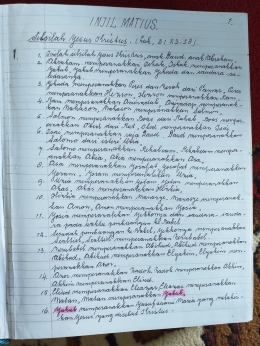 INJIL MATIUS. 1.
Silsilah Yesus Kristus. (Luk. 3: 23-38)
1. Inilah silsilah Yesus Kristus, anak Daud, anak Abraham.
2. Abraham memperanakkan Ishak, Ishak memperanakkan
Yakub, Yakub memperanakkan Yehuda dan saudara-sa-
udaranya.
3. Yehuda memperanakkan Peres dan Zerah dari Tamar, Peres
memperanakkan Hezron, Hezron memperanakkan Ram.
4. Ram memperanakkan Aminadab, Aminadab memperanak-
kan Nahason, Nahason memperanakkan Salmon.
5. Salmon memperanakkan Boas dari Rahab, Boas memper-
anakkan Obed dari Rut, Obed memperanakkan Isai.
6. Isai memperanakkan raja Daud. Daud memperanakkan
Salomo dari isteri Uria.
7. Salomo memperanakkan Rehabeam, Rehabeam memper-
anakkan Abia, Abia memperanakkan Asa.
8. Asa memperanakkan Yosafat, Yosafat memperanakkan
Yoram, Yoram memperanakkan Uzia.
9. Uzia memperanakkan Yotam, Yotam memperanakkan
Ahas, Ahas memperanakkan Hizkia.
10. Hizkia memperanakkan Manasye, Manasye memperanak-
kan Amon, Amon memperanakkan Yosia.
11. Yosia memperanakkan Yekhonya dan saudara-saudara-
nya pada waktu pembuangan ke Babel.
12. Sesudah pembuangan ke Babel, Yekhonya memperanakkan
Sealtiel, Sealtiel memperanakkan Zerubabel.
13. Zerubabel memperanakkan Abihud, Abihud memperanakkan
Elyakim, Elyakim mem-
peranakkan Azor.
14. Azor memperanakkan Zadok, Zadok memperanakkan Akhim,
Akhim memperanakkan Eliud.
15. Eliud memperanakkan Eleazar, Eleazar memperanakkan
Matan, Matan memperanakkan Yakub.
16. Yakub memperanakkan Yusuf suami Maria yang melahir-
kan Yesus yang disebut Kristus.